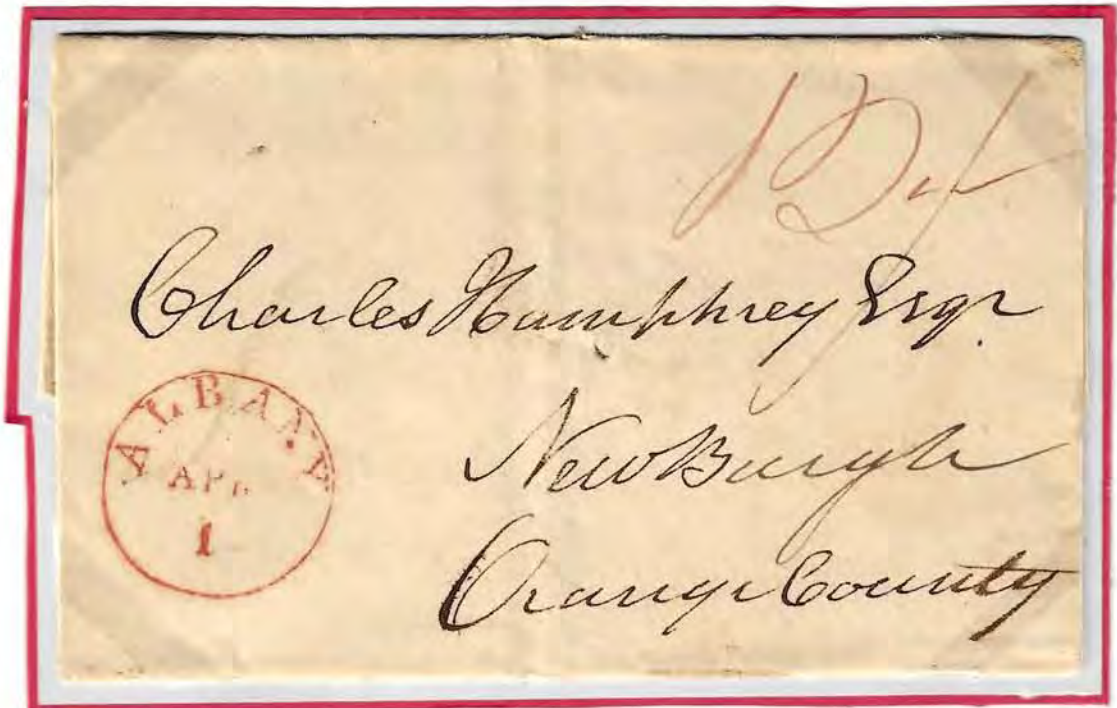 Charles Humphrey Esqr.
NewBurgh
Orange County
ALBANY
APR
1